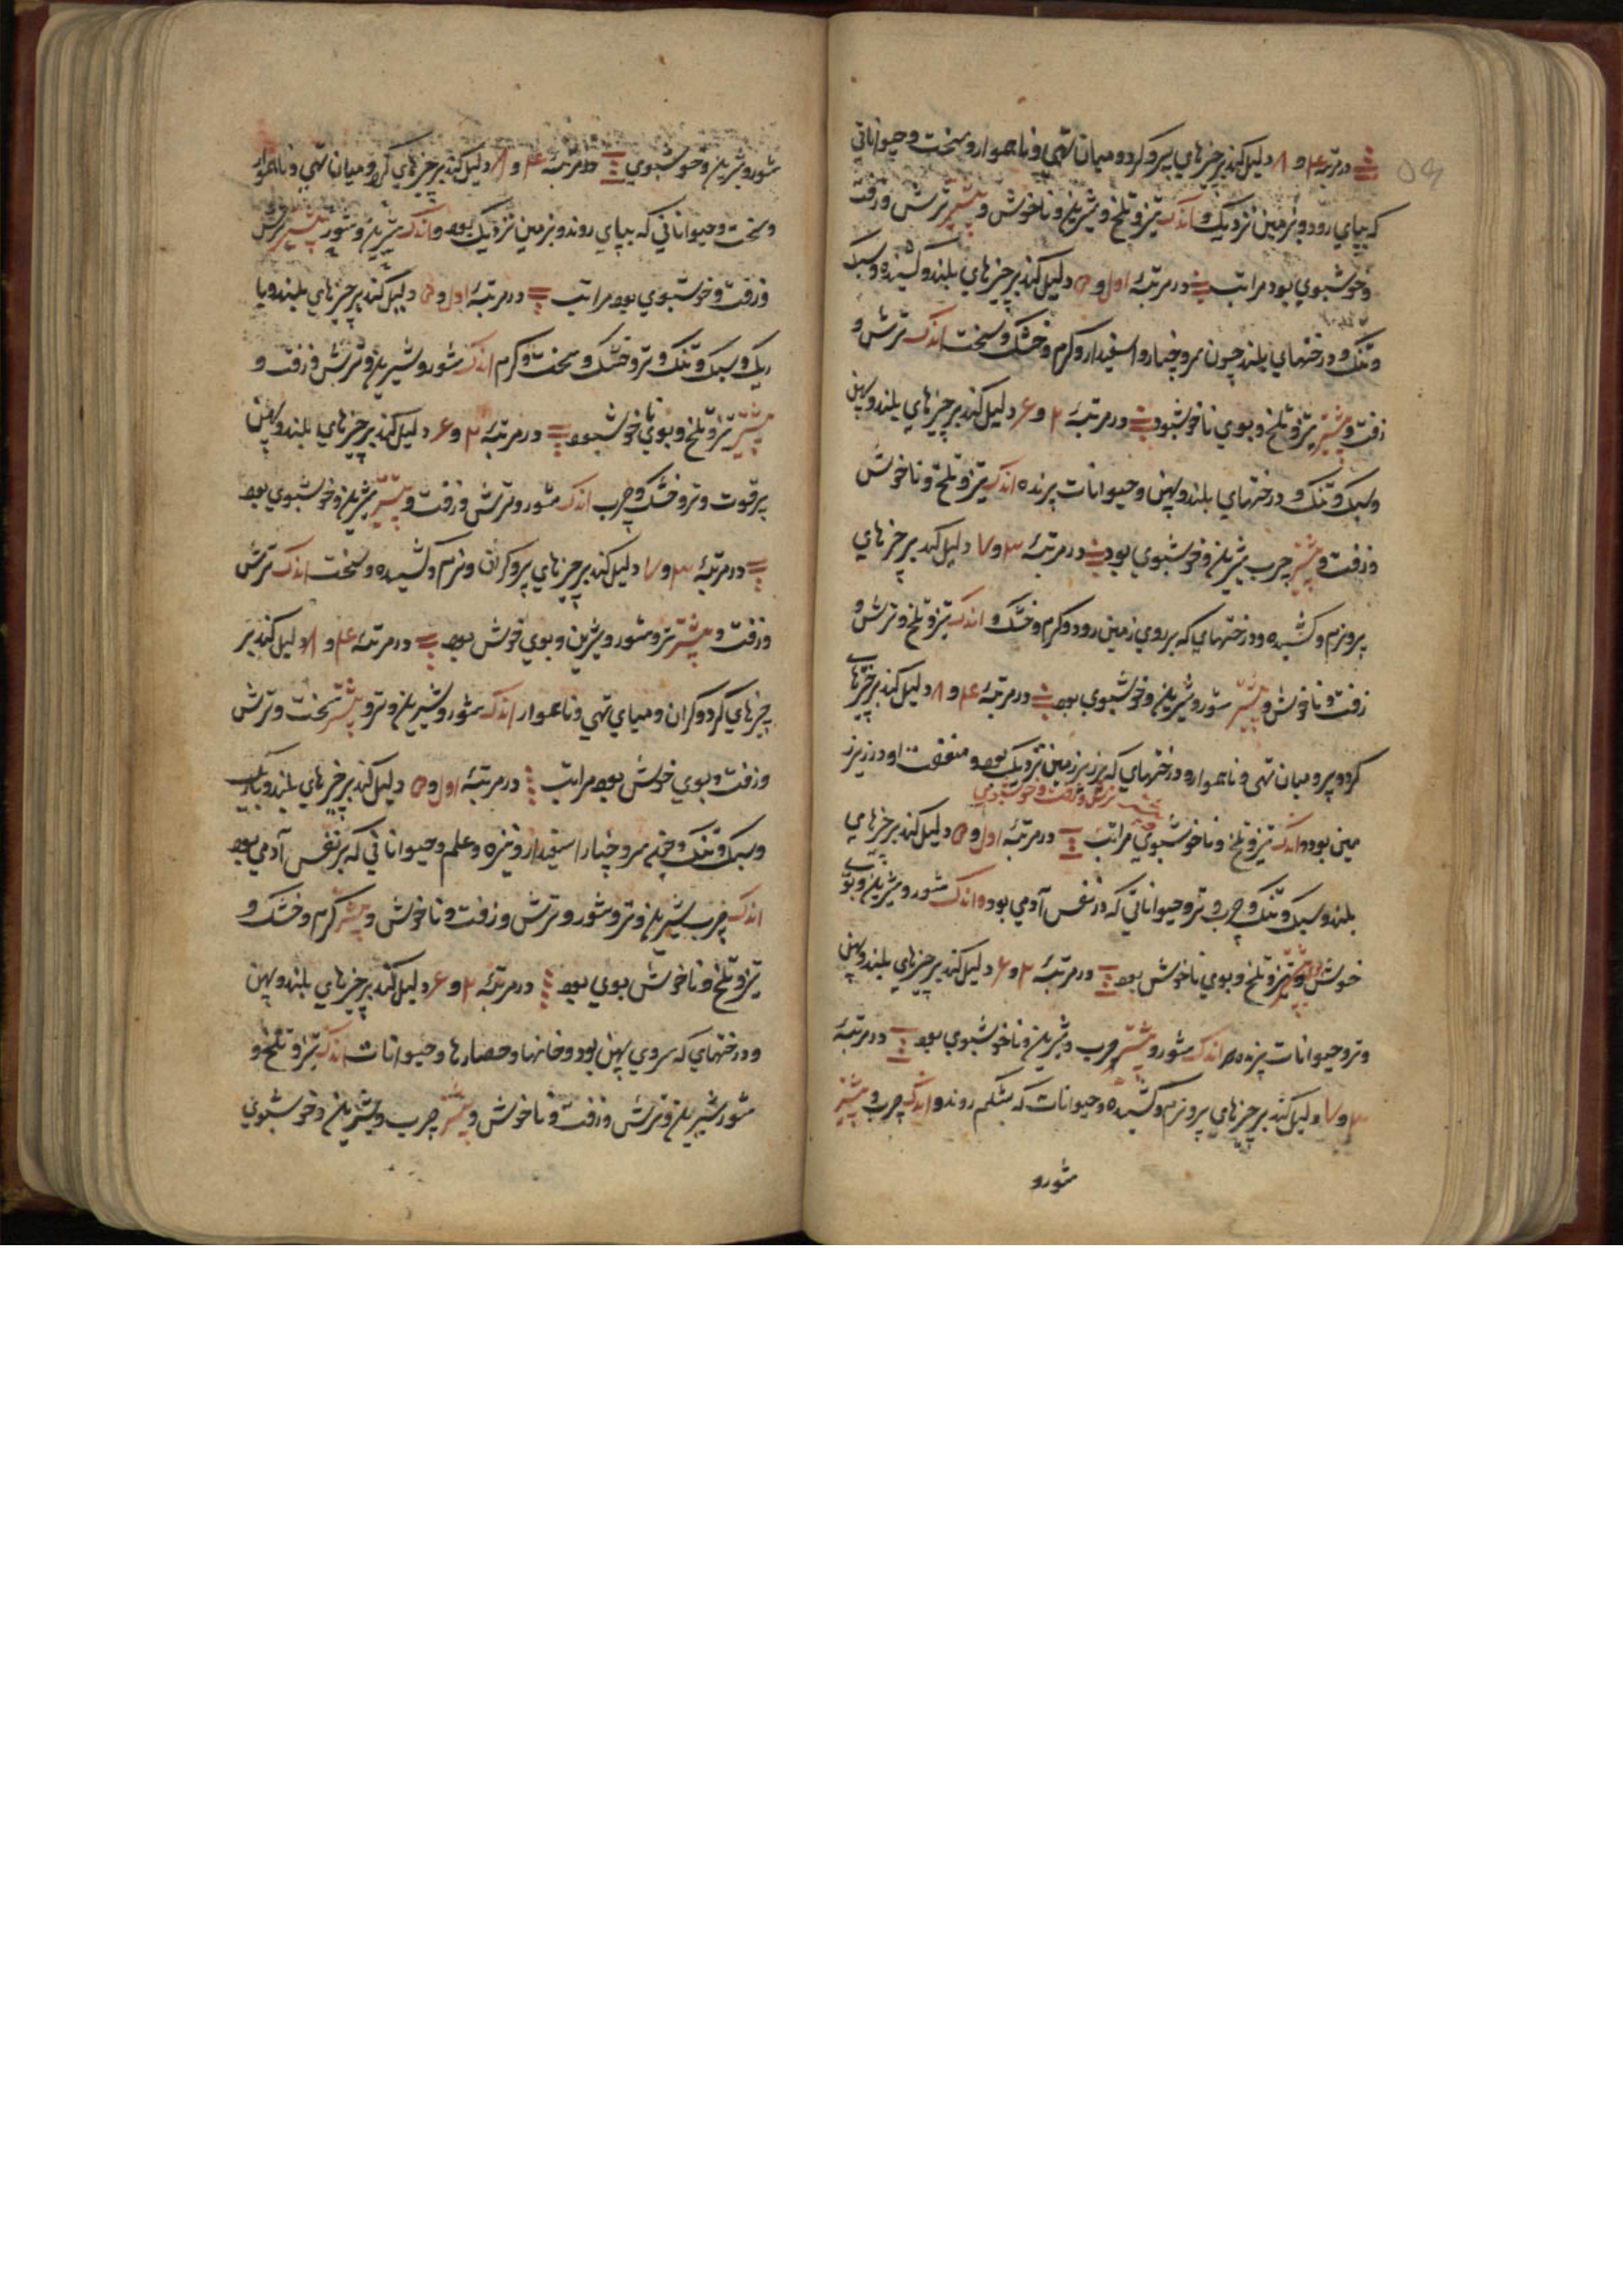 ۵۹
در مرتبهٔ ۴ و ۸ دلیل کند بر چیزهای پر و کرد و میان تهی و ناهموار و سخت و حیواناتی
که بپای رود و بزمین نزدیک و اندک تیز و تلخ و شیرین و ناخوش و بیشتر ترش و زفت
و خوشبوی بود مراتب در مرتبهٔ اول و ۵ دلیل کند بر چیزهای بلند و کشیده و سبک
و تنک و درختهای بلند چون سرو چنار و اسفیدار و کرم و خشک و سخت اندک ترش و
زفت و بیشتر تیز و تلخ و بوی ناخوش بود در مرتبهٔ ۲ و ۶ دلیل کند بر چیزهای بلند و پهن
و سبک و تنک و درختهای بلند و پهن و حیوانات پرنده اندک تیز و تلخ و ناخوش
و زفت و بیشتر چرب شیرین و خوشبوی بود در مرتبهٔ ۳ و ۷ دلیل کند بر چیزهای
پر و نرم و کشیده و درختهای که بر روی زمین رود و کرم و خشک و اندک تیز و تلخ و ترش و
زفت و ناخوش و بیشتر شور و شیرین و خوشبوی بود در مرتبهٔ ۴ و ۸ دلیل کند بر چیزهای
کرد و پر و میان تهی و ناهموار و درختهای که بزیر زمین نزدیک بود و منفعت او در زیر
بیشتر ترش و زفت و خوشبوی
زمین بود و اندک تیز و تلخ و ناخوشبوی مراتب در مرتبهٔ اول و ۵ دلیل کند بر چیزهای
بلند و سبک و تنک و چرب و تر و حیواناتی که در نفس آدمی بود و اندک شور و شیرین و بوی
خوش و بیشتر تیز و تلخ و بوی ناخوش بود در مرتبهٔ ۲ و ۶ دلیل کند بر چیزهای بلند و پهن
و تر و حیوانات پرنده اندک شور و بیشتر چرب و شیرین و ناخوشبوی بود در مرتبهٔ
۳ و ۷ دلیل کند بر چیزهای پر و نرم و کشیده و حیوانات که بشکم روند و اندک چرب و بیشتر
شور و
شور و شیرین و خوشبوی در مرتبهٔ ۴ و ۸ دلیل کند بر چیزهای کرد و میان تهی و ناهموار
و سخت و حیواناتی که بپای روند و بزمین نزدیک بود و اندک شیرین و شور بیشتر ترش
و زفت و خوشبوی بود مراتب در مرتبهٔ اول و ۵ دلیل کند بر چیزهای بلند و با
ریک و سبک و تنک و تر و خشک و سخت و کرم اندک شور و شیرین و ترش و زفت و
بیشتر تیز و تلخ و بوی ناخوش بود در مرتبهٔ ۲ و ۶ دلیل کند بر چیزهای بلند و پهن
پر قوت و تر و خشک و چرب اندک شور و ترش و زفت و بیشتر شیرین و خوشبوی بود
در مرتبهٔ ۳ و ۷ دلیل کند بر چیزهای پر و کران و نرم و کشیده و سخت اندک ترش
و زفت و بیشتر تر و شور و شیرین و بوی خوش بود در مرتبهٔ ۴ و ۸ دلیل کند بر
چیزهای کرد و کران و میای تهی و ناهموار اندک شور و شیرین و تر و بیشتر سخت و ترش
و زفت و بوی خوش بود مراتب در مرتبهٔ اول و ۵ دلیل کند بر چیزهای بلند و باریک
و سبک و تنک و سرو چنار اسفیدار و نیزه و علم و حیواناتی که بر نفس آدمی بود
اندک چرب شیرین و تر و شور و ترش و زفت و ناخوش و بیشتر کرم و خشک و
تیز و تلخ و ناخوش بوی بود در مرتبهٔ ۲ و ۶ دلیل کند بر چیزهای بلند و پهن
و درختهای که بروی پهن بود و خانها و حصارها و حیوانات اندک تیز و تلخ و
شور شیرین و ترش و زفت و ناخوش و بیشتر چرب و شیرین و خوشبوی